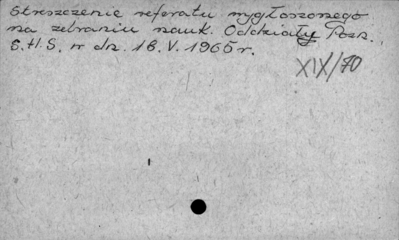 streszczenie referatu wygłoszonego
na zebraniu nauk. Oddziału Pozn.
S.H.S. w dn. 18. V. 1965 r.
XIX/70